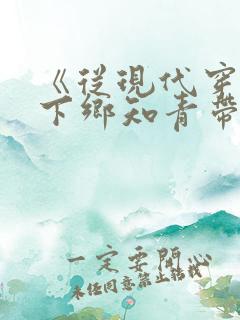 《從現代穿
下鄉知青帶
一定要開心
未經同意禁止轉載